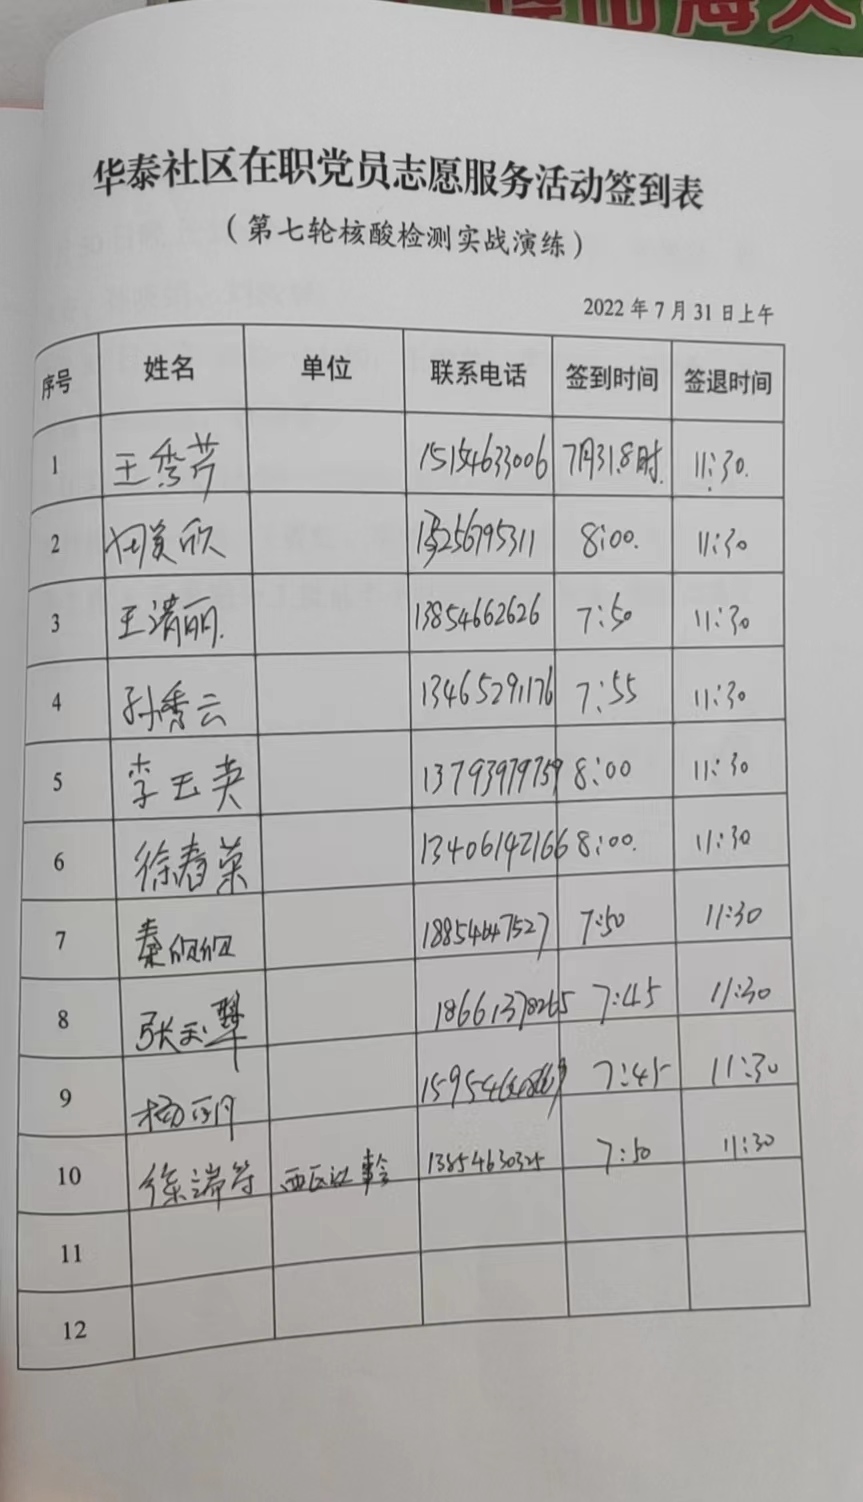 华泰社区在职党员志愿服务活动签到表
（第七轮核酸检测实战演练）
2022年7月31日上午
序号 姓名 单位 联系电话 签到时间 签退时间
1 王秀芹 15154633006 7月31.8时. 11:30.
2 8:00. 11:30
3 王清丽. 13854662626 7:50 11:30
4 孙秀云 13465291176 7:55 11:30
5 李玉英 13793979759 8:00 11:30
6 徐春荣 13406142166 8:00. 11:30
7 秦 7:50 11:30
8 张玉翠 18661378265 7:45 11:30
9 杨 7:45 11:30
10 徐瑞芳 13854630325 7:50 11:30
11
12